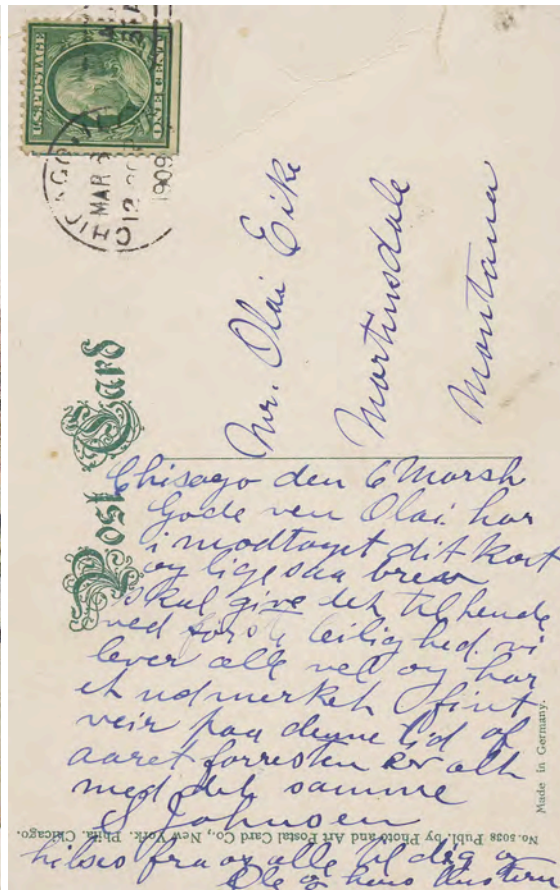 U.S. POSTAGE
ONE CENT
CHICAGO, ILL
MAR 6
12
1909
Post Card
Mr. Olai Eike
Martinsdale
Montana
Chisago den 6 Marsh
Gode ven Olai har
i modtaget dit kort
og ligesaa brew
skal give det til hende
ved förste leilighed. vi
lever alle vel og har
et udmerket fint
veir paa denne tid af
aaret forresten er alt
med det samme
S Johnsen
hilses fra os alle til dig og
Ole og hans
Made in Germany.
No. 5038 Publ. by Photo and Art Postal Card Co., New York. Phila. Chicago.